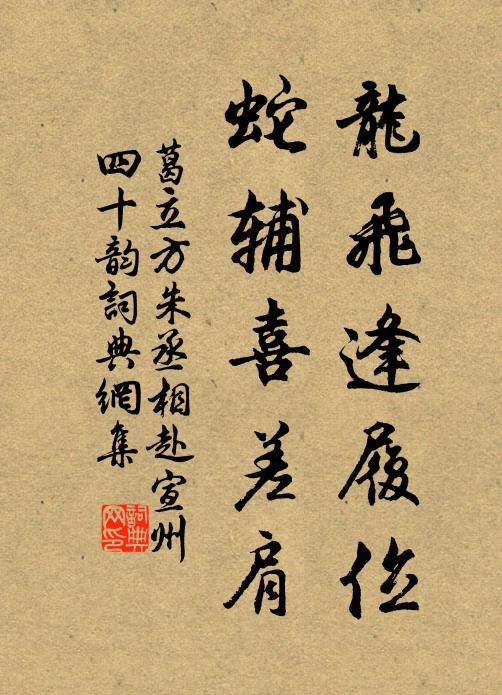 龍飛逢履位
蛇辅喜差肩
葛立方朱丞相赴宣州
四十韵詞典網集
詞典網印